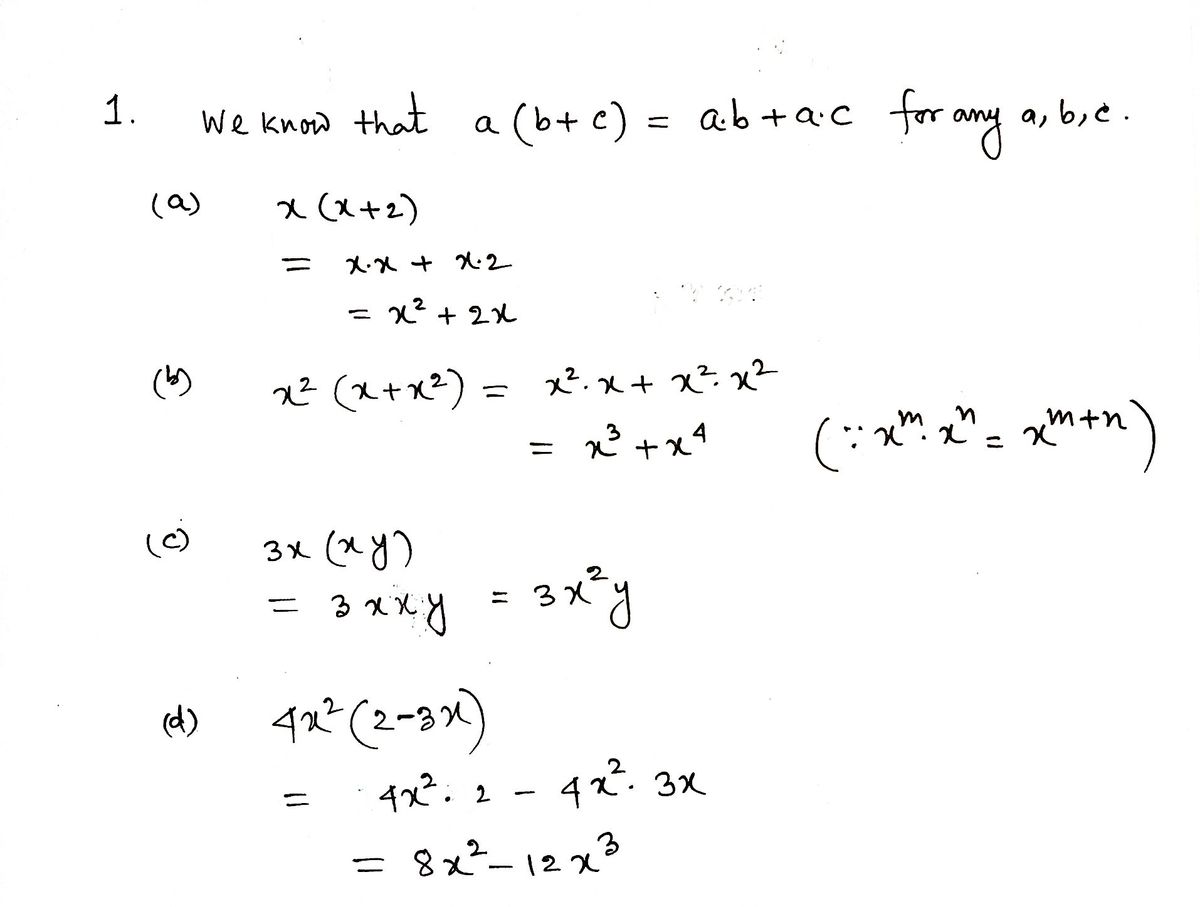 1. We know that a (b+c) = a·b + a·c for any a, b, c.
(a) x (x+2)
= x·x + x·2
= x² + 2x
(b) x² (x+x²) = x²·x + x²·x²
= x³ + x⁴ (∵ xᵐ·xⁿ = xᵐ⁺ⁿ)
(c) 3x (xy)
= 3xxy = 3x²y
(d) 4x² (2-3x)
= 4x²·2 - 4x²·3x
= 8x² - 12x³